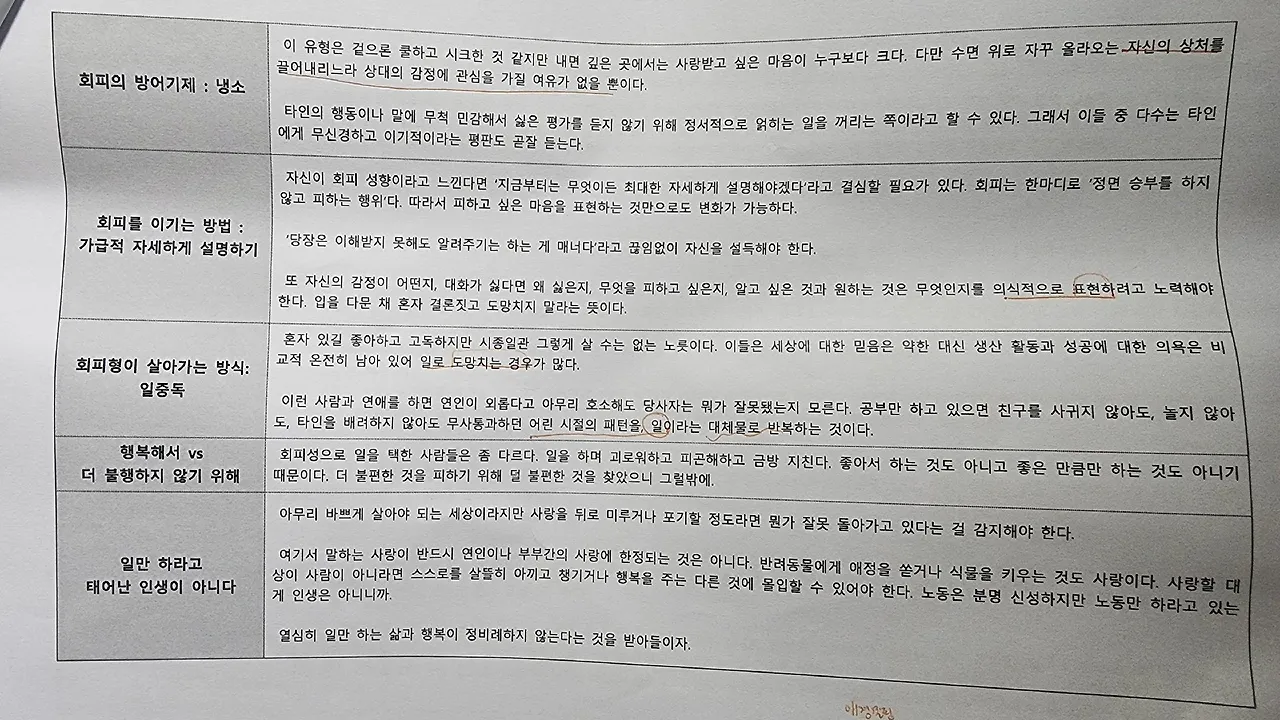 회피의 방어기제 : 냉소
이 유형은 겉으론 쿨하고 시크한 것 같지만 내면 깊은 곳에서는 사랑받고 싶은 마음이 누구보다 크다. 다만 수면 위로 자꾸 올라오는 자신의 상처를
끌어내리느라 상대의 감정에 관심을 가질 여유가 없을 뿐이다.
타인의 행동이나 말에 무척 민감해서 싫은 평가를 듣지 않기 위해 정서적으로 얽히는 일을 꺼리는 쪽이라고 할 수 있다. 그래서 이들 중 다수는 타인
에게 무신경하고 이기적이라는 평판도 곧잘 듣는다.
회피를 이기는 방법 :
가급적 자세하게 설명하기
자신이 회피 성향이라고 느낀다면 '지금부터는 무엇이든 최대한 자세하게 설명해야겠다'라고 결심할 필요가 있다. 회피는 한마디로 '정면 승부를 하지
않고 피하는 행위'다. 따라서 피하고 싶은 마음을 표현하는 것만으로도 변화가 가능하다.
'당장은 이해받지 못해도 알려주기는 하는 게 매너다'라고 끊임없이 자신을 설득해야 한다.
또 자신의 감정이 어떤지, 대화가 싫다면 왜 싫은지, 무엇을 피하고 싶은지, 알고 싶은 것과 원하는 것은 무엇인지를 의식적으로 표현하려고 노력해야
한다. 입을 다문 채 혼자 결론짓고 도망치지 말라는 뜻이다.
회피형이 살아가는 방식:
일중독
혼자 있길 좋아하고 고독하지만 시종일관 그렇게 살 수는 없는 노릇이다. 이들은 세상에 대한 믿음은 약한 대신 생산 활동과 성공에 대한 의욕은 비
교적 온전히 남아 있어 일로 도망치는 경우가 많다.
이런 사람과 연애를 하면 연인이 외롭다고 아무리 호소해도 당사자는 뭐가 잘못됐는지 모른다. 공부만 하고 있으면 친구를 사귀지 않아도, 놀지 않아
도, 타인을 배려하지 않아도 무사통과하던 어린 시절의 패턴을, 일이라는 대체물로 반복하는 것이다.
행복해서 vs
더 불행하지 않기 위해
회피성으로 일을 택한 사람들은 좀 다르다. 일을 하며 괴로워하고 피곤해하고 금방 지친다. 좋아서 하는 것도 아니고 좋은 만큼만 하는 것도 아니기
때문이다. 더 불편한 것을 피하기 위해 덜 불편한 것을 찾았으니 그럴밖에.
일만 하라고
태어난 인생이 아니다
아무리 바쁘게 살아야 되는 세상이라지만 사랑을 뒤로 미루거나 포기할 정도라면 뭔가 잘못 돌아가고 있다는 걸 감지해야 한다.
여기서 말하는 사랑이 반드시 연인이나 부부간의 사랑에 한정되는 것은 아니다. 반려동물에게 애정을 쏟거나 식물을 키우는 것도 사랑이다. 사랑할 대
상이 사람이 아니라면 스스로를 살뜰히 아끼고 챙기거나 행복을 주는 다른 것에 몰입할 수 있어야 한다. 노동은 분명 신성하지만 노동만 하라고 있는
게 인생은 아니니까.
열심히 일만 하는 삶과 행복이 정비례하지 않는다는 것을 받아들이자.